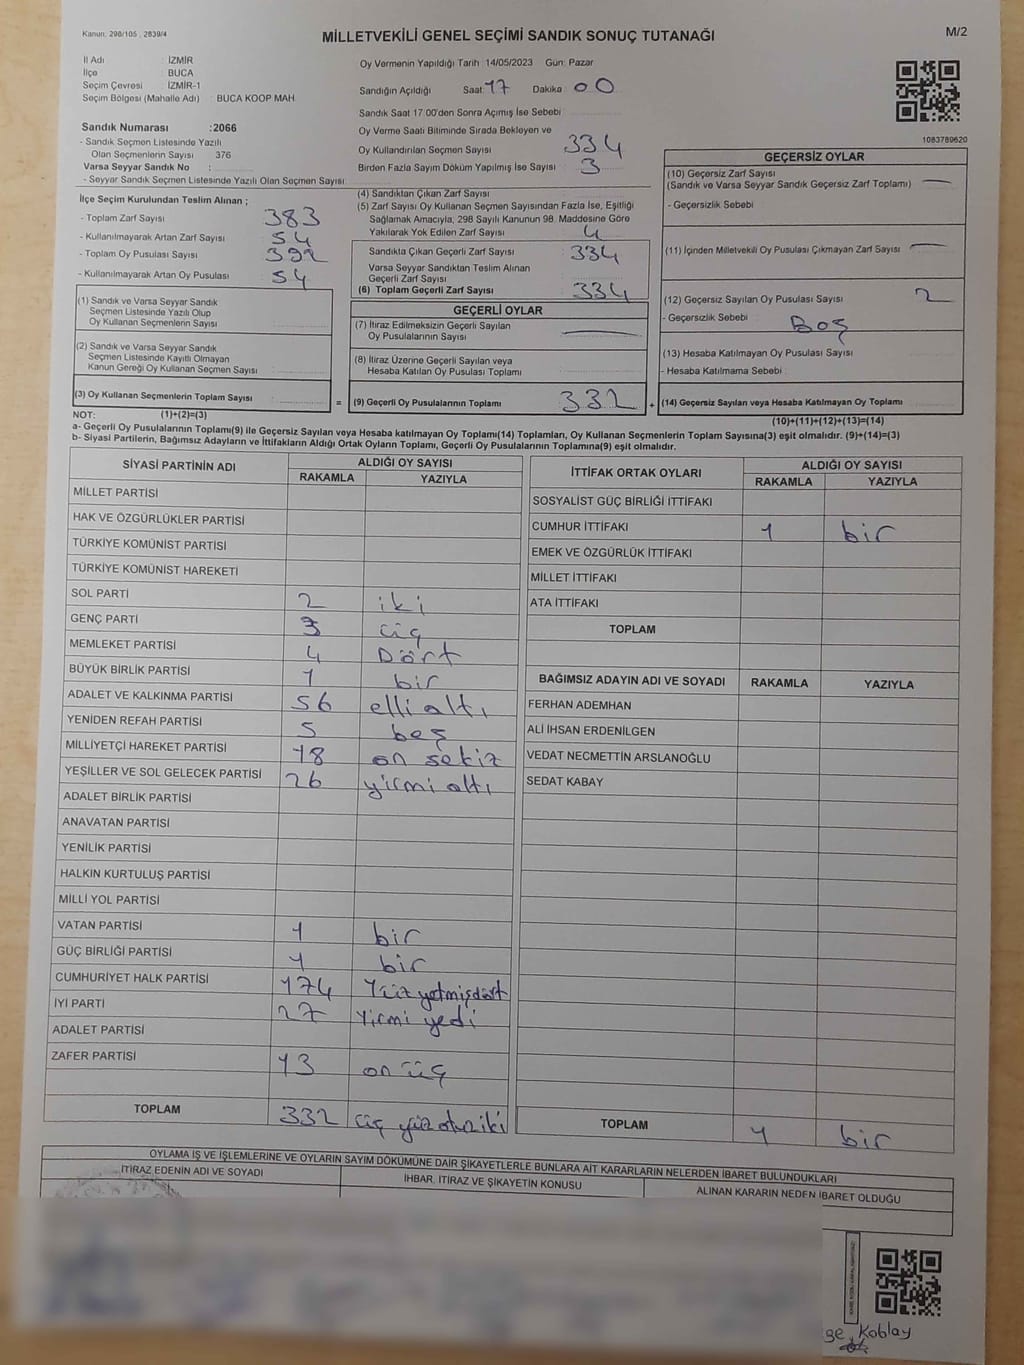 Kanun, 298/105 , 2839/4
MİLLETVEKİLİ GENEL SEÇİMİ SANDIK SONUÇ TUTANAĞI
M/2
İl Adı : İZMİR
İlçe : BUCA
Seçim Çevresi : İZMİR-1
Seçim Bölgesi (Mahalle Adı) : BUCA KOOP MAH.
Sandık Numarası :2066
- Sandık Seçmen Listesinde Yazılı
Olan Seçmenlerin Sayısı : 376
Varsa Seyyar Sandık No :
- Seyyar Sandık Seçmen Listesinde Yazılı Olan Seçmen Sayısı:
İlçe Seçim Kurulundan Teslim Alınan ;
- Toplam Zarf Sayısı : 383
- Kullanılmayarak Artan Zarf Sayısı : 54
- Toplam Oy Pusulası Sayısı : 392
- Kullanılmayarak Artan Oy Pusulası : 54
(1) Sandık ve Varsa Seyyar Sandık
Seçmen Listesinde Yazılı Olup
Oy Kullanan Seçmenlerin Sayısı :
(2) Sandık ve Varsa Seyyar Sandık
Seçmen Listesinde Kayıtlı Olmayan
Kanun Gereği Oy Kullanan Seçmen Sayısı :
(3) Oy Kullanan Seçmenlerin Toplam Sayısı : =
Oy Vermenin Yapıldığı Tarih :14/05/2023 Gün: Pazar
Sandığın Açıldığı Saat: 17 Dakika: 00
Sandık Saat 17:00'den Sonra Açılmış İse Sebebi :
Oy Verme Saati Bitiminde Sırada Bekleyen ve
Oy Kullandırılan Seçmen Sayısı : 334
Birden Fazla Sayım Döküm Yapılmış İse Sayısı : 3
(4) Sandıktan Çıkan Zarf Sayısı :
(5) Zarf Sayısı Oy Kullanan Seçmen Sayısından Fazla İse, Eşitliği
Sağlamak Amacıyla, 298 Sayılı Kanunun 98. Maddesine Göre
Yakılarak Yok Edilen Zarf Sayısı : 4
Sandıkta Çıkan Geçerli Zarf Sayısı : 334
Varsa Seyyar Sandıktan Teslim Alınan
Geçerli Zarf Sayısı :
(6) Toplam Geçerli Zarf Sayısı : 334
GEÇERLİ OYLAR
(7) İtiraz Edilmeksizin Geçerli Sayılan
Oy Pusulalarının Sayısı :
(8) İtiraz Üzerine Geçerli Sayılan veya
Hesaba Katılan Oy Pusulası Toplamı :
(9) Geçerli Oy Pusulalarının Toplamı : 332 +
1083789620
GEÇERSİZ OYLAR
(10) Geçersiz Zarf Sayısı
(Sandık ve Varsa Seyyar Sandık Geçersiz Zarf Toplamı) : —
- Geçersizlik Sebebi :
(11) İçinden Milletvekili Oy Pusulası Çıkmayan Zarf Sayısı : —
(12) Geçersiz Sayılan Oy Pusulası Sayısı : 2
- Geçersizlik Sebebi : Boş
(13) Hesaba Katılmayan Oy Pusulası Sayısı :
- Hesaba Katılmama Sebebi :
(14) Geçersiz Sayılan veya Hesaba Katılmayan Oy Pusulası Toplamı :
NOT: (1)+(2)=(3) (10)+(11)+(12)+(13)=(14)
a- Geçerli Oy Pusulalarının Toplamı(9) ile Geçersiz Sayılan veya Hesaba katılmayan Oy Toplamı(14) Toplamları, Oy Kullanan Seçmenlerin Toplam Sayısına(3) eşit olmalıdır. (9)+(14)=(3)
b- Siyasi Partilerin, Bağımsız Adayların ve İttifakların Aldığı Ortak Oyların Toplamı, Geçerli Oy Pusulalarının Toplamına(9) eşit olmalıdır.
SİYASİ PARTİNİN ADI ALDIĞI OY SAYISI
RAKAMLA YAZIYLA
MİLLET PARTİSİ
HAK VE ÖZGÜRLÜKLER PARTİSİ
TÜRKİYE KOMÜNİST PARTİSİ
TÜRKİYE KOMÜNİST HAREKETİ
SOL PARTİ 2 iki
GENÇ PARTİ 3 üç
MEMLEKET PARTİSİ 4 Dört
BÜYÜK BİRLİK PARTİSİ 1 bir
ADALET VE KALKINMA PARTİSİ 56 elli altı
YENİDEN REFAH PARTİSİ 5 beş
MİLLİYETÇİ HAREKET PARTİSİ 18 on sekiz
YEŞİLLER VE SOL GELECEK PARTİSİ 26 yirmi altı
ADALET BİRLİK PARTİSİ
ANAVATAN PARTİSİ
YENİLİK PARTİSİ
HALKIN KURTULUŞ PARTİSİ
MİLLİ YOL PARTİSİ
VATAN PARTİSİ 1 bir
GÜÇ BİRLİĞİ PARTİSİ 1 bir
CUMHURİYET HALK PARTİSİ 174 Yüz yetmişdört
İYİ PARTİ 27 Yirmi yedi
ADALET PARTİSİ
ZAFER PARTİSİ 13 on üç
TOPLAM 332 üç yüz otuziki
İTTİFAK ORTAK OYLARI ALDIĞI OY SAYISI
RAKAMLA YAZIYLA
SOSYALİST GÜÇ BİRLİĞİ İTTİFAKI
CUMHUR İTTİFAKI 1 bir
EMEK VE ÖZGÜRLÜK İTTİFAKI
MİLLET İTTİFAKI
ATA İTTİFAKI
TOPLAM
BAĞIMSIZ ADAYIN ADI VE SOYADI RAKAMLA YAZIYLA
FERHAN ADEMHAN
ALİ İHSAN ERDENİLGEN
VEDAT NECMETTİN ARSLANOĞLU
SEDAT KABAY
TOPLAM 1 bir
OYLAMA İŞ VE İŞLEMLERİNE VE OYLARIN SAYIM DÖKÜMÜNE DAİR ŞİKAYETLERLE BUNLARA AİT KARARLARIN NELERDEN İBARET BULUNDUKLARI
İTİRAZ EDENİN ADI VE SOYADI İHBAR, İTİRAZ VE ŞİKAYETİN KONUSU ALINAN KARARIN NEDEN İBARET OLDUĞU
ge Koblay